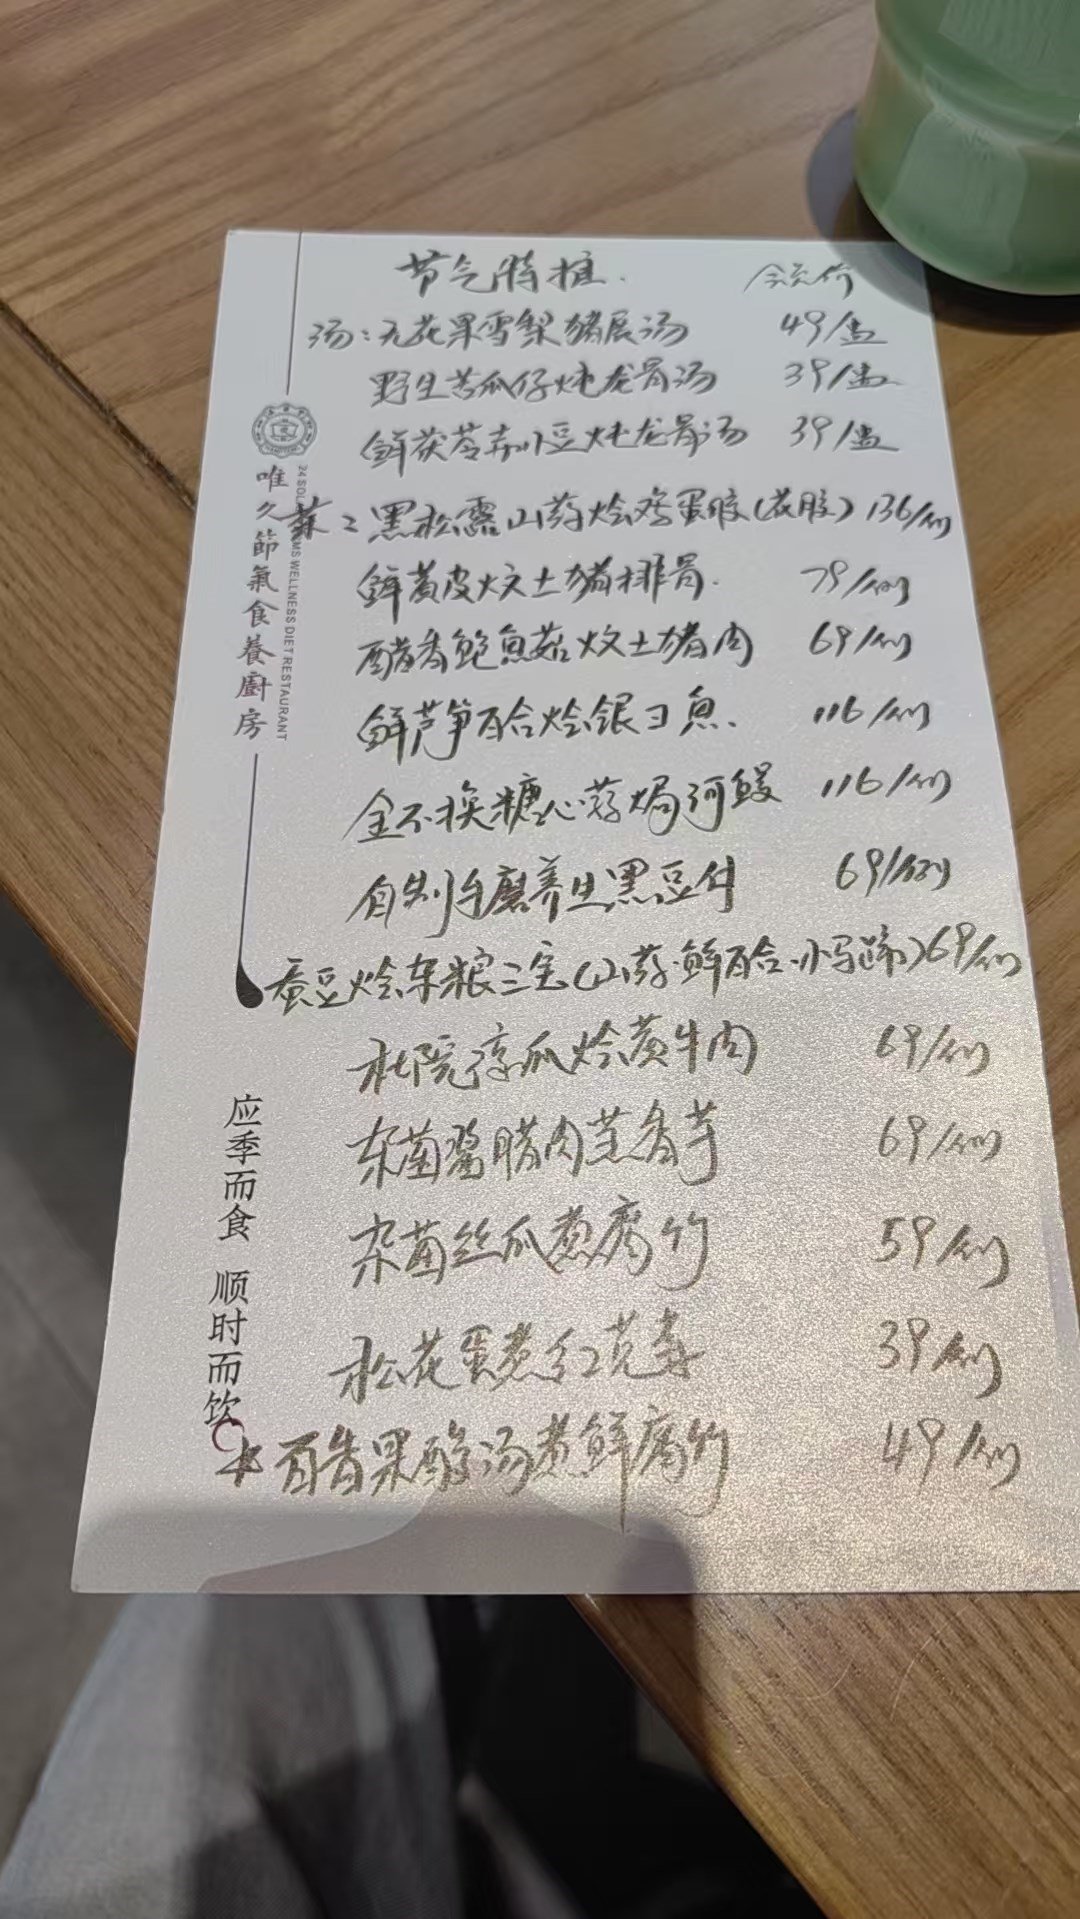 节气特推. 会员价
汤:无花果雪梨猪展汤 49/盅
野生苦瓜仔炖龙骨汤 39/盅
鲜茯苓赤小豆炖龙骨汤 39/盅
菜:黑松露山药烩鸡蛋胶(花胶) 136/例
鲜黄皮炆土猪排骨. 79/例
醋香鲍鱼菇炆土猪肉 69/例
鲜芦笋百合烩银刁鱼. 116/例
金不换糖心蒜焗河鳗 116/例
自制手磨养生黑豆付 69/例
蚕豆烩杂粮三宝(山药.鲜百合.小马蹄)69/例
凉瓜烩黄牛肉 69/例
腊肉蒸香芋 69/例
杂菌丝瓜煮腐竹 59/例
松花蛋煮红苋菜 39/例
百香果酸汤煮鲜腐竹 49/例
唯久節氣食養廚房
WELLNESS DIET RESTAURANT
应季而食 顺时而饮